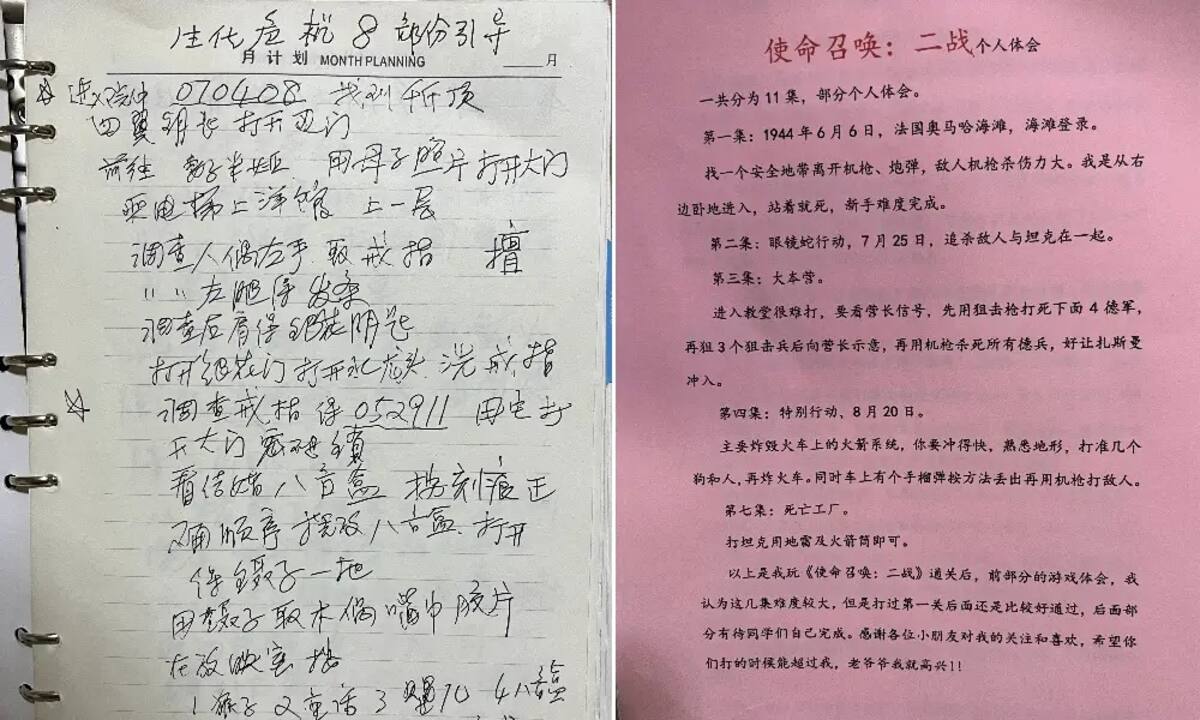 生化危机8部份引导
月计划 MONTH PLANNING ____月
070408 找到千斤顶
四翼钥匙 打开
前往 用母子照片打开大门
电梯上洋馆 上一层
调查人偶左手 取戒指
〃〃左腿得发条
调查后肩得
打开 门打开水龙头 洗戒指
调查戒指得052911 用它打
开大门密码锁
八音盒 按刻痕正
确顺序 摆放八音盒 打开
得到镊子一把
用镊子取木偶嘴中胶片
在放映室按
1 2童话 3 4八音盒
使命召唤：二战个人体会
一共分为11集，部分个人体会。
第一集：1944年6月6日，法国奥马哈海滩，海滩登录。
找一个安全地带离开机枪、炮弹，敌人机枪杀伤力大。我是从右
边卧地进入，站着就死，新手难度完成。
第二集：眼镜蛇行动，7月25日，追杀敌人与坦克在一起。
第三集：大本营。
进入教堂很难打，要看营长信号，先用狙击枪打死下面4德军，
再狙3个狙击兵后向营长示意，再用机枪杀死所有德兵，好让扎斯曼
冲入。
第四集：特别行动、8月20日。
主要炸毁火车上的火箭系统，你要冲得快，熟悉地形，打准几个
狗和人，再炸火车。同时车上有个手榴弹按方法丢出再用机枪打敌人。
第七集：死亡工厂。
打坦克用地雷及火箭筒即可。
以上是我玩《使命召唤：二战》通关后，前部分的游戏体会，我
认为这几集难度较大，但是打过第一关后面还是比较好通过，后面部
分有待同学们自己完成。感谢各位小朋友对我的关注和喜欢，希望你
们打的时候能超过我，老爷爷我就高兴！！